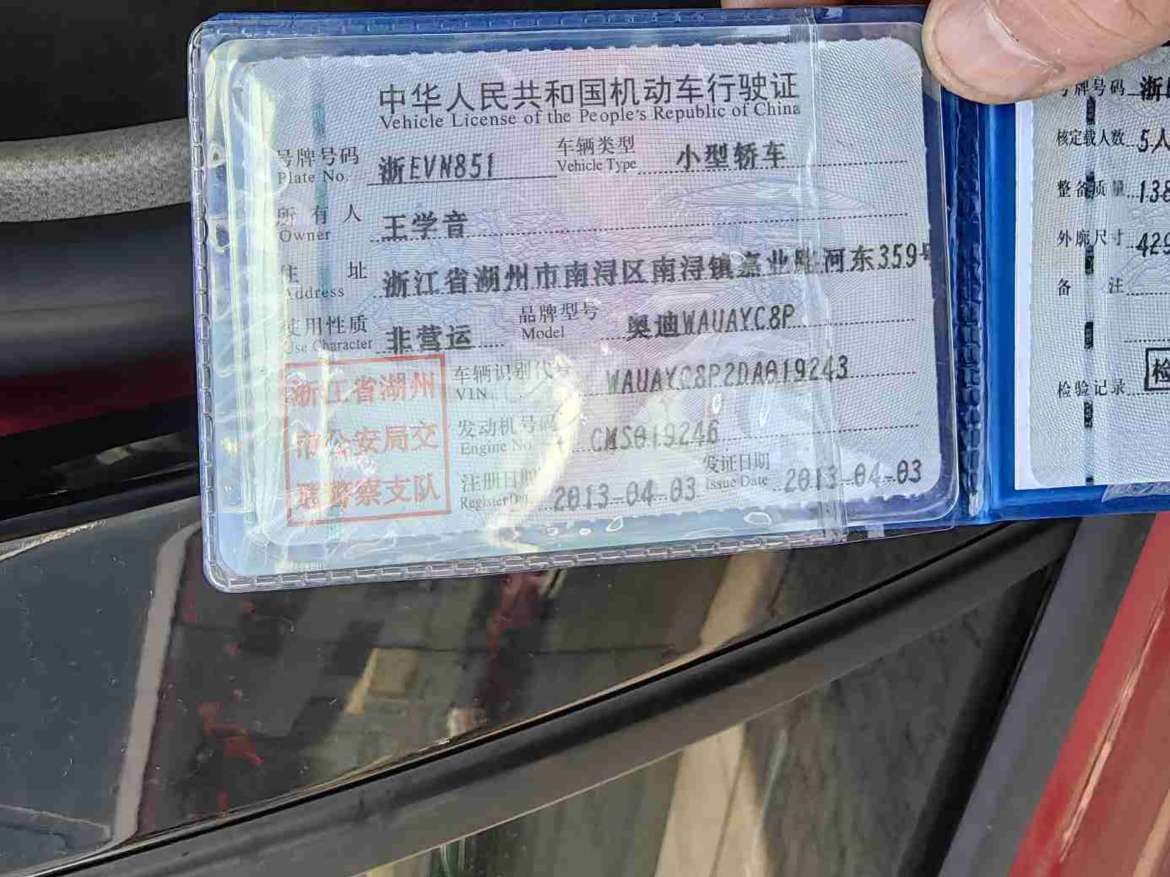 中华人民共和国机动车行驶证
Vehicle License of the People's Republic of China
号牌号码 浙EVN851 车辆类型 小型轿车
Plate No. Vehicle Type
所有人 王学音
Owner
住址 浙江省湖州市南浔区南浔镇嘉业路河东359号
Address
使用性质 非营运 品牌型号 奥迪WAUAYC8P
Use Character Model
浙江省湖州
市公安局交
通警察支队
车辆识别代号 WAUAYC8P2DA019243
VIN
发动机号码 CMS019246
Engine No.
注册日期 2013-04-03 发证日期 2013-04-03
Register Date Issue Date
号牌号码 浙
核定载人数 5人
整备质量
外廓尺寸
备注
检验记录 检